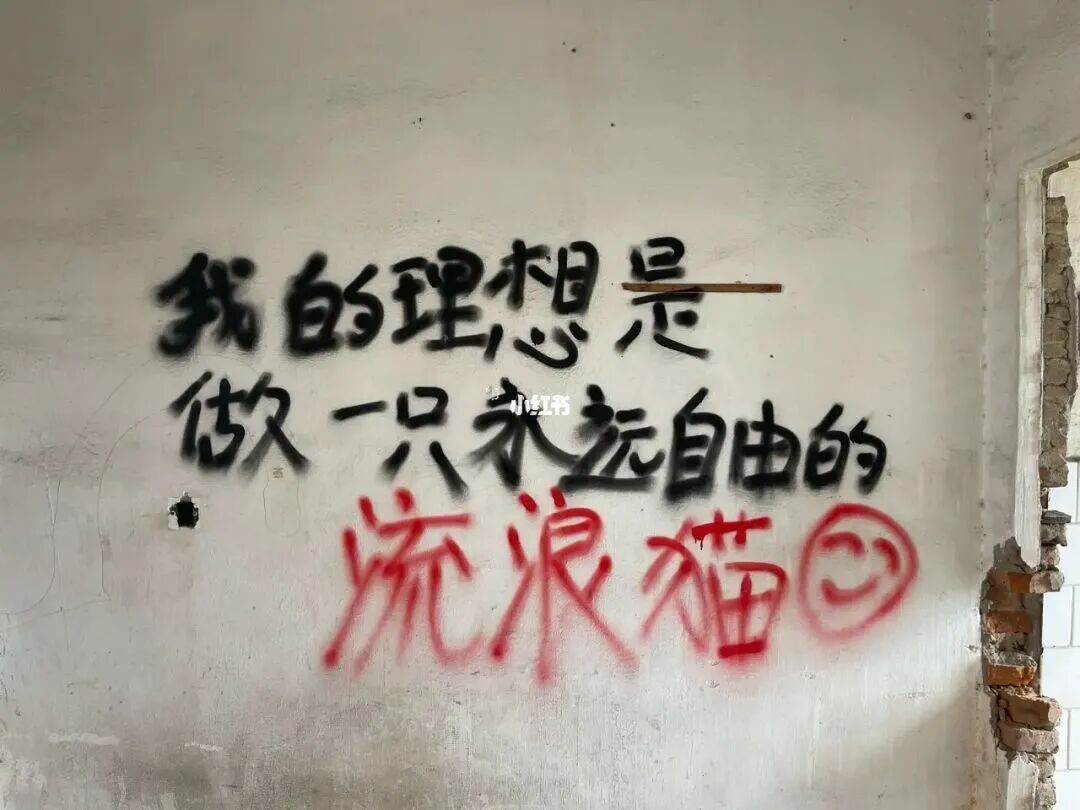 我的理想是
做一只永远自由的
小红书
流浪猫